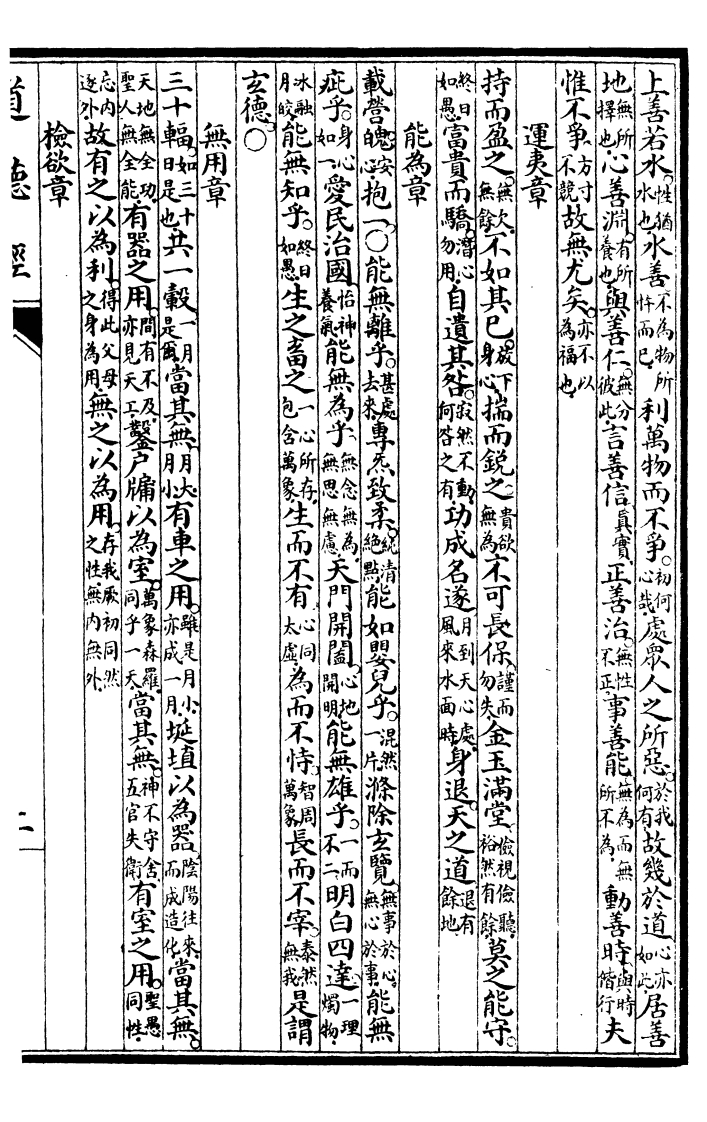 上善若水。性猶水也水善不為物所忤而已利萬物而不爭。初何心哉處眾人之所惡。於我何有故幾於道心亦如此居善
地無所擇也心善淵。有所養也與善仁。無分彼此言善信真實正善治。無性不正事善能無為而無所不為動善時與時偕行夫
惟不爭方寸不競故無尤矣。亦不以為福也
運夷章
持而盈之。無欠無餘不如其已放下身心揣而銳之。貴欲無為不可長保謹而勿失金玉滿堂儉視儉聽裕然有餘莫之能守。
終日如愚富貴而驕潛心勿用自遺其咎。寂然不動何咎之有功成名遂月到天心處風來水面時身退天之道退有餘地
能為章
載營魄安心抱一○能無離乎。甚處去來專炁致柔。純清絕點能如嬰兒乎。混然一片滌除玄覽無事於心無心於事能無
疵乎。身心如一愛民治國怡神養氣能無為乎無念無為無思無慮天門開闔心地開明能無雄乎。一而不二明白四達一理燭物
冰融月皎能無知乎。終日如愚生之畜之一心所存包含萬象生而不有心同太虛為而不恃智周萬象長而不宰泰然無我是謂
玄德。○
無用章
三十輻如三十日是也共一轂一月是爾當其無月大月小有車之用。雖是月小亦成一月埏埴以為器陰陽往來而成造化當其無。
天地無全功聖人無全能有器之用間有不及亦見天工鑿戶牖以為室萬象森羅同乎一天當其無神不守舍五官失衛有室之用。聖愚同性
忘內逐外故有之以為利得此父母之身為用無之以為用。存我厥初同然之性無內無外
檢欲章
道德經
二